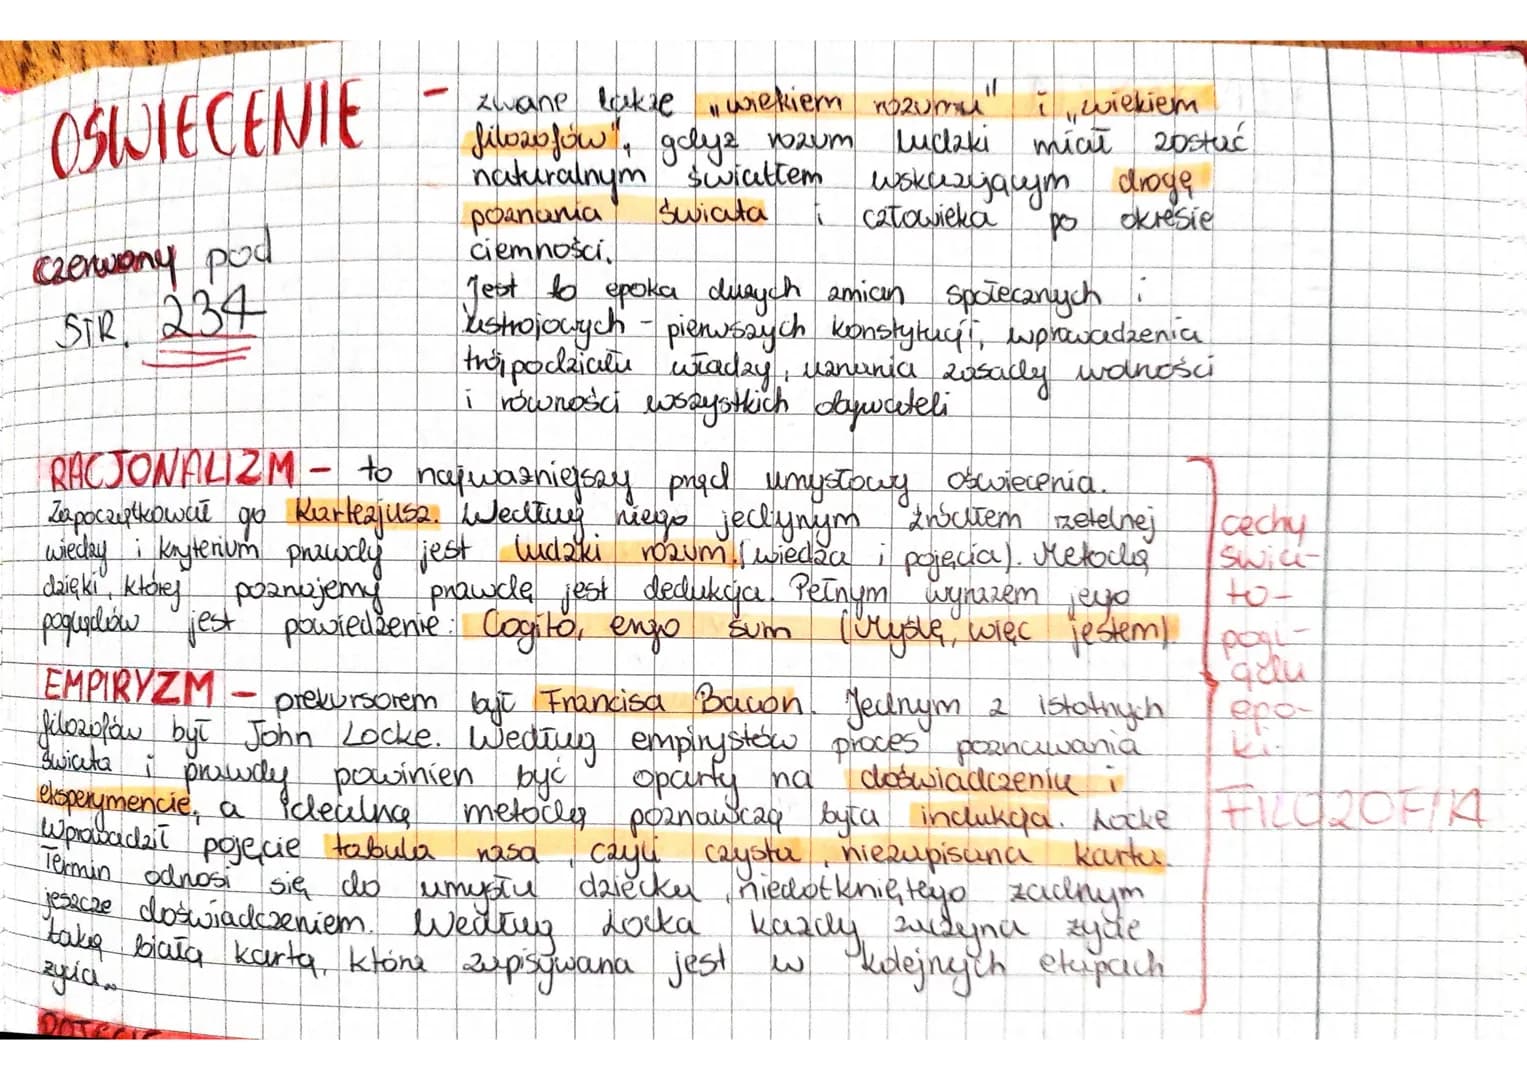 OŚWIECENIE -
zwane także „wiekiem rozumu" i „wiekiem
filozofów", gdyż rozum ludzki miał zostać
naturalnym światłem wskazującym drogę
poznania świata i człowieka po okresie
ciemności.
Jest to epoka dużych zmian społecznych i
ustrojowych - pierwszych konstytucji, wprowadzenia
trójpodziału władzy, uznania zasady wolności
i równości wszystkich obywateli
czerwony pod
STR. 234
RACJONALIZM - to najważniejszy prąd umysłowy oświecenia.
Zapoczątkował go Kartezjusz. Według niego jedynym źródłem rzetelnej
wiedzy i kryterium prawdy jest ludzki rozum (wiedza i pojęcia). Metodą
dzięki, której poznajemy prawdę jest dedukcja. Pełnym wyrazem jego
poglądów jest powiedzenie: Cogito, ergo sum (Myślę, więc jestem)
EMPIRYZM - prekursorem był Francisa Bacon. Jednym z istotnych
filozofów był John Locke. Według empirystów proces poznawania
świata i prawdy powinien być oparty na doświadczeniu i
eksperymencie, a idealną metodą poznawczą była indukcja. Locke
wprowadził pojęcie tabula rasa, czyli czysta, niezapisana karta.
Termin odnosi się do umysłu dziecka, niedotkniętego żadnym
jeszcze doświadczeniem. Według Locka każdy zaczyna życie
taką białą kartą, która zapisywana jest w kolejnych etapach
życia.
cechy
świa-
to-
pogl-
ądu
epo-
ki.
FILOZOFIA